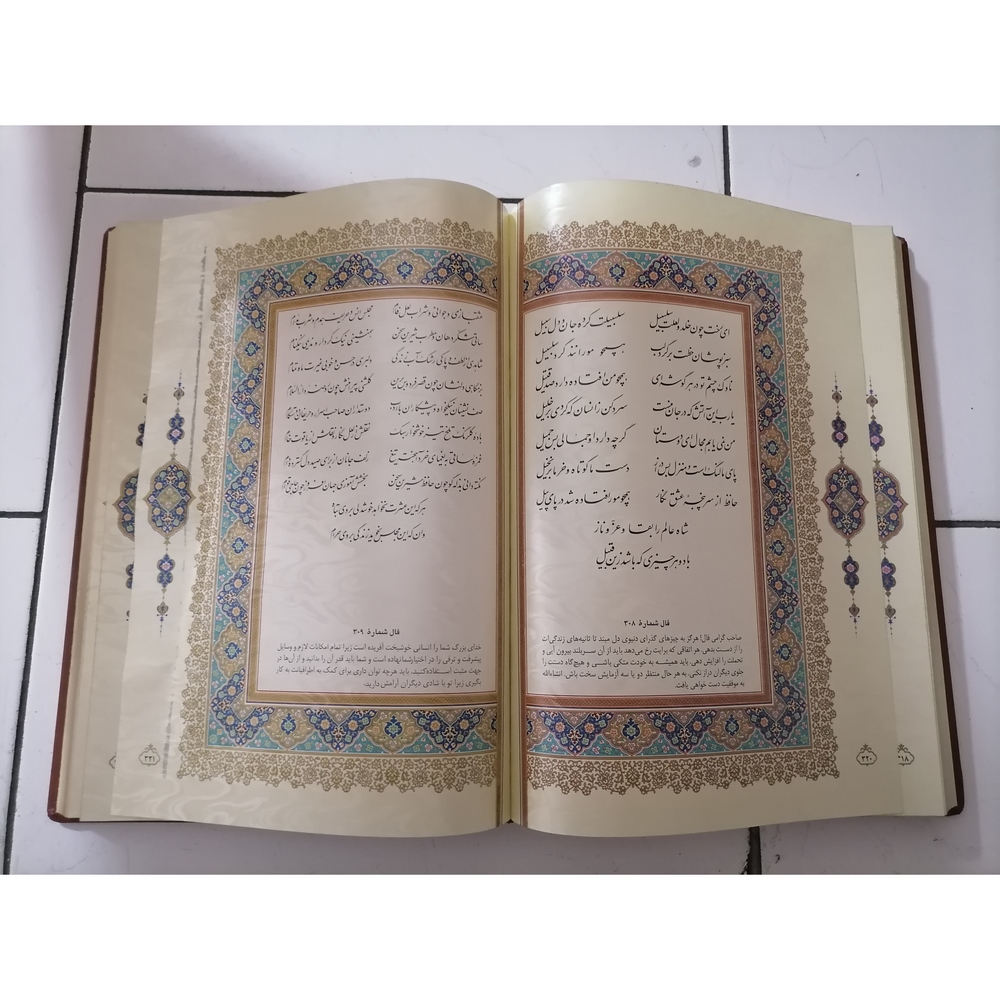 ای رخت چون خلد و لعلت سلسبیل سلسبیلت کرده جان و دل سبیل
سبزپوشان خطت بر گرد لب همچو مورانند گرد سلسبیل
ناوک چشم تو در هر گوشه‌ای همچو من افتاده دارد صد قتیل
یارب این آتش که در جان منست سرد کن زانسان که کردی بر خلیل
من نمی‌یابم مجال ای دوستان گرچه دارد او جمالی بس جمیل
پای ما لنگ است و منزل بس دراز دست ما کوتاه و خرما بر نخیل
حافظ از سرپنجهٔ عشق نگار همچو مور افتاده شد در پای پیل
شاه عالم را بقا و عز و ناز
باد و هر چیزی که باشد زین قبیل
فال شمارهٔ ۳۰۸
صاحب گرامی فال! هرگز به چیزهای گذرای دنیوی دل مبند تا ثانیه‌های زندگی‌ات
را از دست بدهی. هر اتفاقی که برایت رخ می‌دهد باید از آن سربلند بیرون آیی و
تحملت را افزایش دهی. باید همیشه به خودت متکی باشی و هیچ‌گاه دستت را
جلوی دیگران دراز نکنی. به هر حال منتظر دو یا سه آزمایش سخت باش. انشاءالله
به موفقیت دست خواهی یافت.
۳۲۰
۳۱۸
عشقبازی و جوانی و شراب لعل فام مجلس انس و حریف همدم و شرب مدام
ساقی شکردهان و مطرب شیرین سخن همنشینی نیک کردار و ندیمی نیکنام
شاهدی از لطف و پاکی رشک آب زندگی دلبری در حسن و خوبی غیرت ماه تمام
بزمگاهی دلنشان چون قصر فردوس برین گلشنی پیرامنش چون روضهٔ دارالسلام
صف نشینان نیکخواه و پیشکاران باادب دوستداران صاحب اسرار و حریفان دوستکام
بادهٔ گلرنگ تلخ تیز خوشخوار سبک نقلش از لعل نگار و نقلش از یاقوت خام
غمزهٔ ساقی به یغمای خرد آهخته تیغ زلف جانان از برای صید دل گسترده دام
نکته دانی بذله گو چون حافظ شیرین سخن بخشش آموزی جهان افروز چون حاجی قوام
هر که این عشرت نخواهد خوشدلی بر وی تباه
وان که این مجلس نجوید زندگی بر وی حرام
فال شمارهٔ ۳۰۹
خدای بزرگ شما را انسانی خوشبخت آفریده است زیرا تمام امکانات لازم و وسایل
پیشرفت و ترقی را در اختیار شما نهاده است و شما باید قدر آن را بدانید و از آن‌ها در
جهت مثبت استفاده کنید. باید هرچه توان داری برای کمک به اطرافیانت به کار
بگیری زیرا تو با شادی دیگران آرامش دارید.
۳۲۱